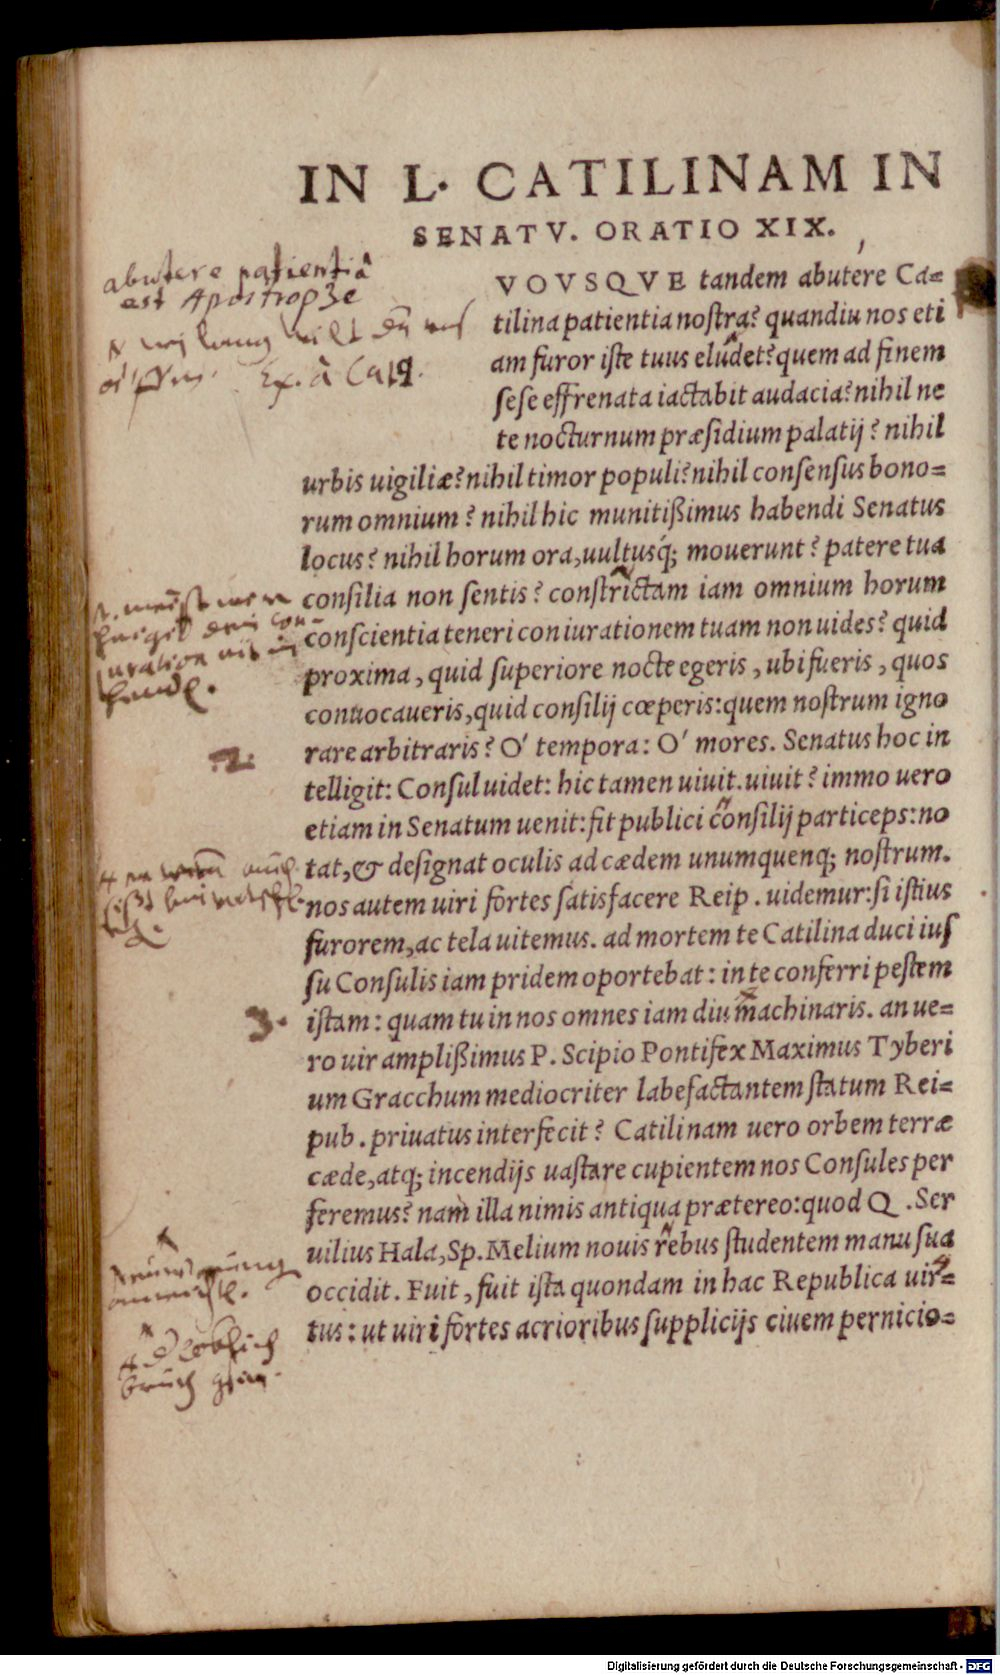 IN L. CATILINAM IN
SENATV. ORATIO XIX.
abutere patientiâ
est Apostrophe
VOVSQVE tandem abutere Ca=
tilina patientia nostra? quandiu nos eti
am furor iste tuus eludet? quem ad finem
sese effrenata iactabit audacia? nihil ne
te nocturnum præsidium palatij? nihil
urbis uigiliæ? nihil timor populi? nihil consensus bono=
rum omnium? nihil hic munitißimus habendi Senatus
locus? nihil horum ora, uultusq́; mouerunt? patere tua
consilia non sentis? constrictam iam omnium horum
conscientia teneri coniurationem tuam non uides? quid
proxima, quid superiore nocte egeris, ubi fueris, quos
conuocaueris, quid consilij cœperis: quem nostrum igno
rare arbitraris? O' tempora: O' mores. Senatus hoc in
2.
telligit: Consul uidet: hic tamen uiuit. uiuit? immo uero
etiam in Senatum uenit: fit publici consilij particeps: no
tat, & designat oculis ad cædem unumquenq; nostrum.
nos autem uiri fortes satisfacere Reip. uidemur: si istius
furorem, ac tela uitemus. ad mortem te Catilina duci ius
su Consulis iam pridem oportebat: in te conferri pestem
3.
istam: quam tu in nos omnes iam diu machinaris. an ue=
ro uir amplißimus P. Scipio Pontifex Maximus Tyberi
um Gracchum mediocriter labefactantem statum Rei=
pub. priuatus interfecit? Catilinam uero orbem terræ
cæde, atq; incendijs uastare cupientem nos Consules per
feremus? nam illa nimis antiqua prætereo: quod Q. Ser
uilius Hala, Sp. Melium nouis rebus studentem manu sua
occidit. Fuit, fuit ista quondam in hac Republica uir=
tus: ut uiri fortes acrioribus supplicijs ciuem pernicio=
Digitalisierung gefördert durch die Deutsche Forschungsgemeinschaft - DFG